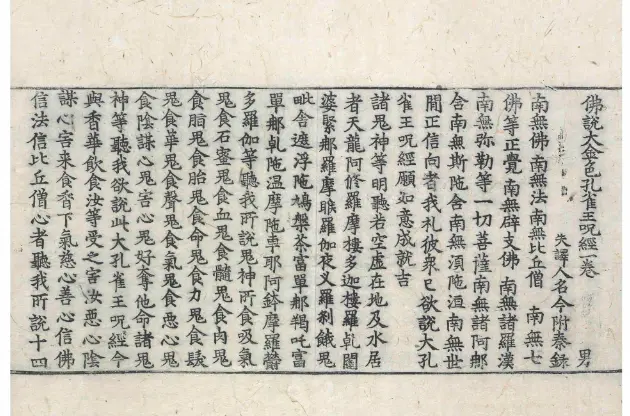 佛說大金色孔雀王呪經一卷
失譯人名今附秦錄 男
南無佛南無法南無比丘僧 南無七
佛等正覺 南無辟支佛 南無諸羅漢
南無弥勒等一切菩薩南無諸阿那
含南無斯陁含南無湏陁洹南無世
間正信向者我礼彼衆已欲說大孔
雀王呪經願如意成就吉
諸鬼神等明聽若空虛在地及水居
者天龍阿修羅摩樓多迦樓羅乹闥
婆緊那羅摩睺羅伽夜叉羅刹餓鬼
毗舍遮浮陁鳩槃茶富單那羯吒富
單那乹陁溫摩陁車耶阿鈴摩羅欝
多羅伽等聽我所說鬼神所食吸氣
鬼食石蜜鬼食血鬼食髓鬼食肉鬼
食脂鬼食胎鬼食命鬼食力鬼食髮
鬼食華鬼食聲鬼食氣鬼食悪心鬼
食陰謀心鬼害心鬼好奪他命諸鬼
神等聽我欲說此大孔雀王呪經今
與香華飲食汝等受之害汝悪心陰
謀心害来食啻下氣慈心善心信佛
信法信比丘僧心者聽我所說十四